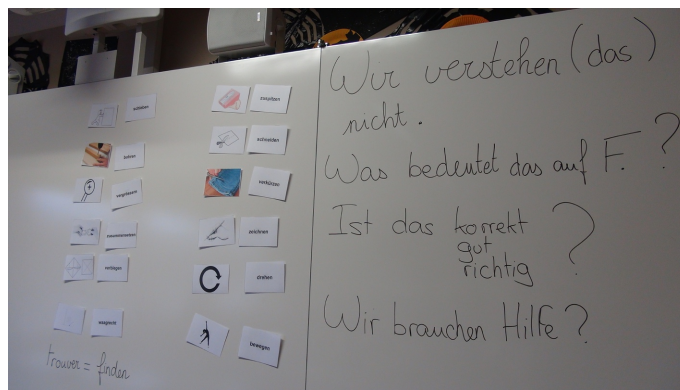 schieben
bohren
vergrössern
zusammensetzen
zerlegen
waagrecht
trouver = finden
zuspitzen
schneiden
verkürzen
zeichnen
drehen
bewegen
Wir verstehen (das)
nicht.
Was bedeutet das auf F. ?
Ist das korrekt ?
gut
richtig
Wir brauchen Hilfe?